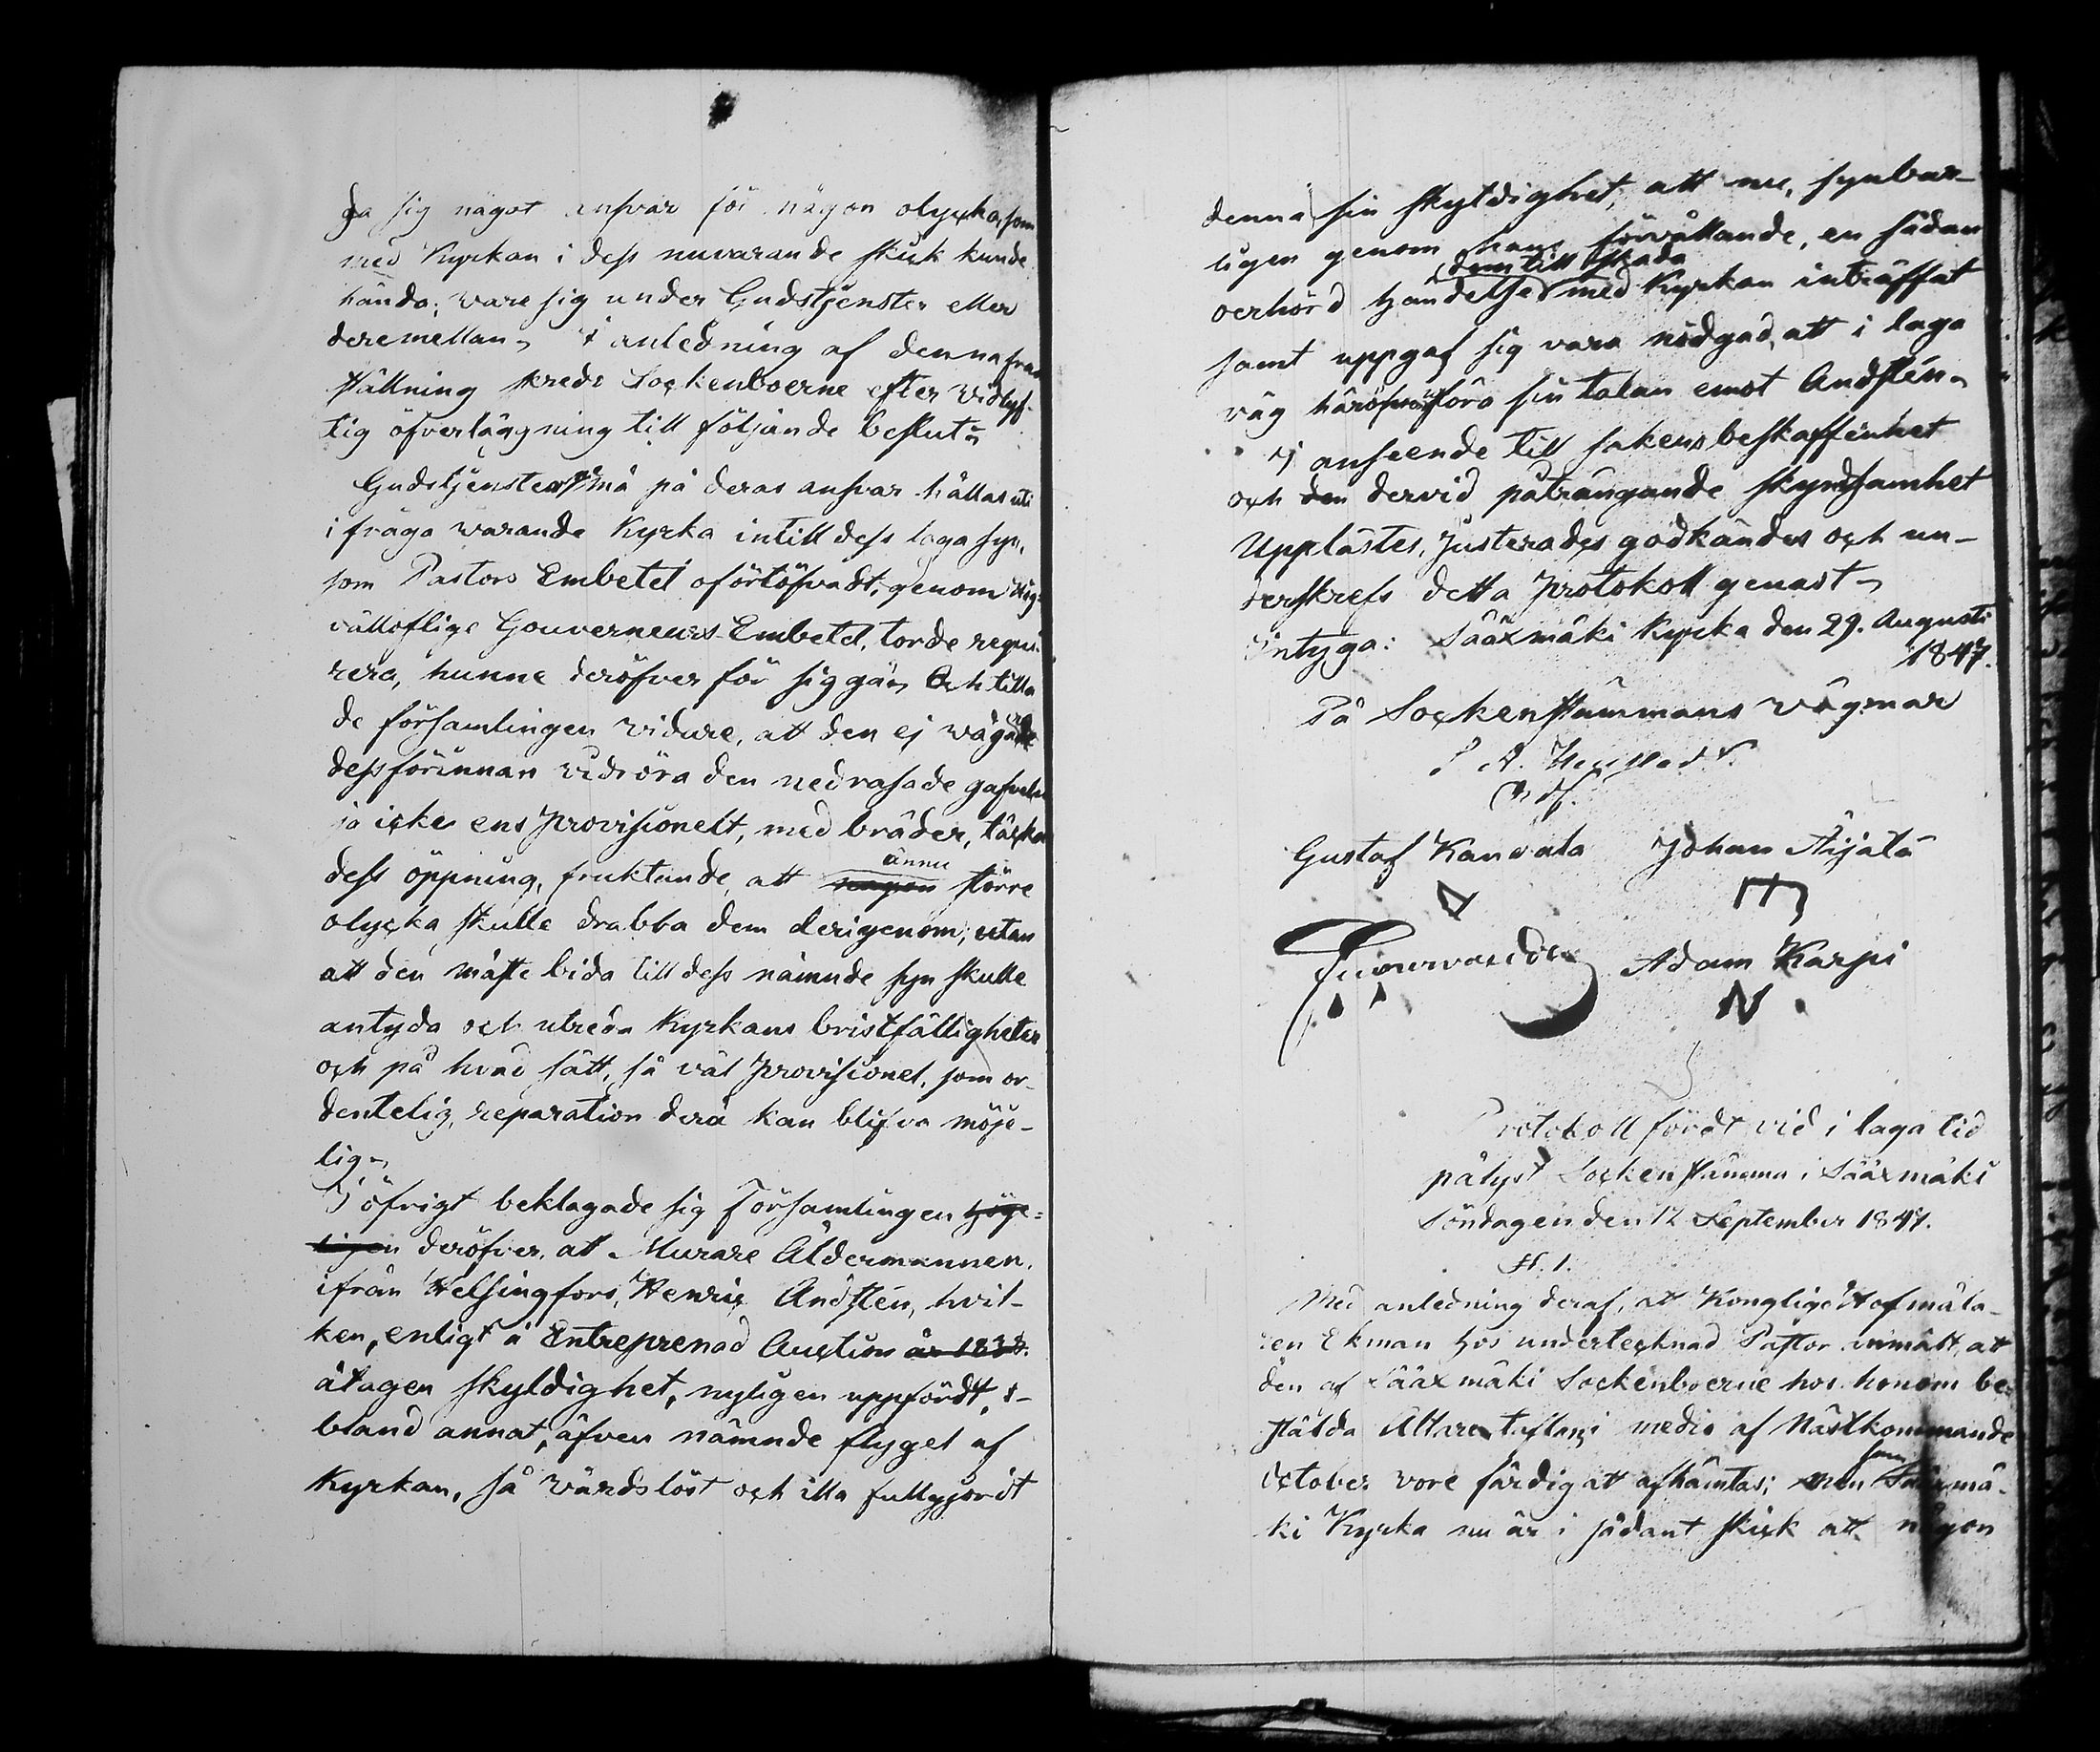 ga sig något ansvar för någon olycka, som
med Kyrkan i dess nuvarande skick kunde
hända; vare sig under Gudstjensten eller
deremellan. I anledning af denna fram
ställning skreds Sockenboerne efter vidlyf-
tig öfverläggning till följande beslut:
Gudstjensten må på deras ansvar hållas uti
i fråga varande Kyrka intill dess laga syn,
som Pastors Embetet ofördröjdt, genom Hög-
vällofliga Gouverneurs-Embetet, torde requi-
rera, hunne deröfver för sig gå. Och tilla
de församlingen vidare, att den ej vågade
dessförinnan vidröra den nedrasade gafveln
ja icke ens provisionelt, med bräder, täcka
dess öppning, fruktande, att någon ännu större
olycka skulle drabba dem derigenom; utan
att den måste bida till dess nämnde syn skulle
antyda och utreda Kyrkans bristfälligheter
och på hvad sätt, så väl provisionel, som or-
dentelig, reparation derå kan blifva möje-
lig.
I öfrigt beklagade sig Församlingen höge-
ligen deröfver, at Murare Åldermannen
ifrån Helsingfors, Henric Andsten, hvil-
ken, enligt å Entreprenad Auction år 1838.
åtagen skyldighet, nyligen uppfördt, i-
bland annat, äfven nämnde flygel af
Kyrkan, så vårdslöst och illa fullgjordt
denna sin skyldighet, att nu, synbar-
ligen genom hans förvållande, en sådan
dem till skada
oerhörd händelse med Kyrkan inträffat
samt uppgaf sig vara nödgad, att i laga
väg häröfver föra sin talan emot Andsten.
I anseende till sakens beskaffenhet
och den dervid påträngande skyndsamhet
Upplästes, justerades godkändes och un-
derskrefs detta Protokoll genast.
Intyga: Sääxmäki Kyrka den 29. Augusti
1847.
På Sockenstämmans vägnar
Gustaf Kanvala Johan Äijälä
Adam Karpi
N
Protokoll fördt vid i laga tid
pålyst Sockenstämma i Sääxmäki
Söndagen den 12 September 1847.
§. 1.
Med anledning deraf, at Konglige Hofmåla-
ren Ekman hos undertecknad Pastor anmält, att
den af Sääxmäki Sockenboerne hos honom be-
stälda Altaretaflan i medio af Nästkommande
October vore färdig att afhämtas; men som Sääxmä-
ki Kyrka nu är i sådant skick att någon